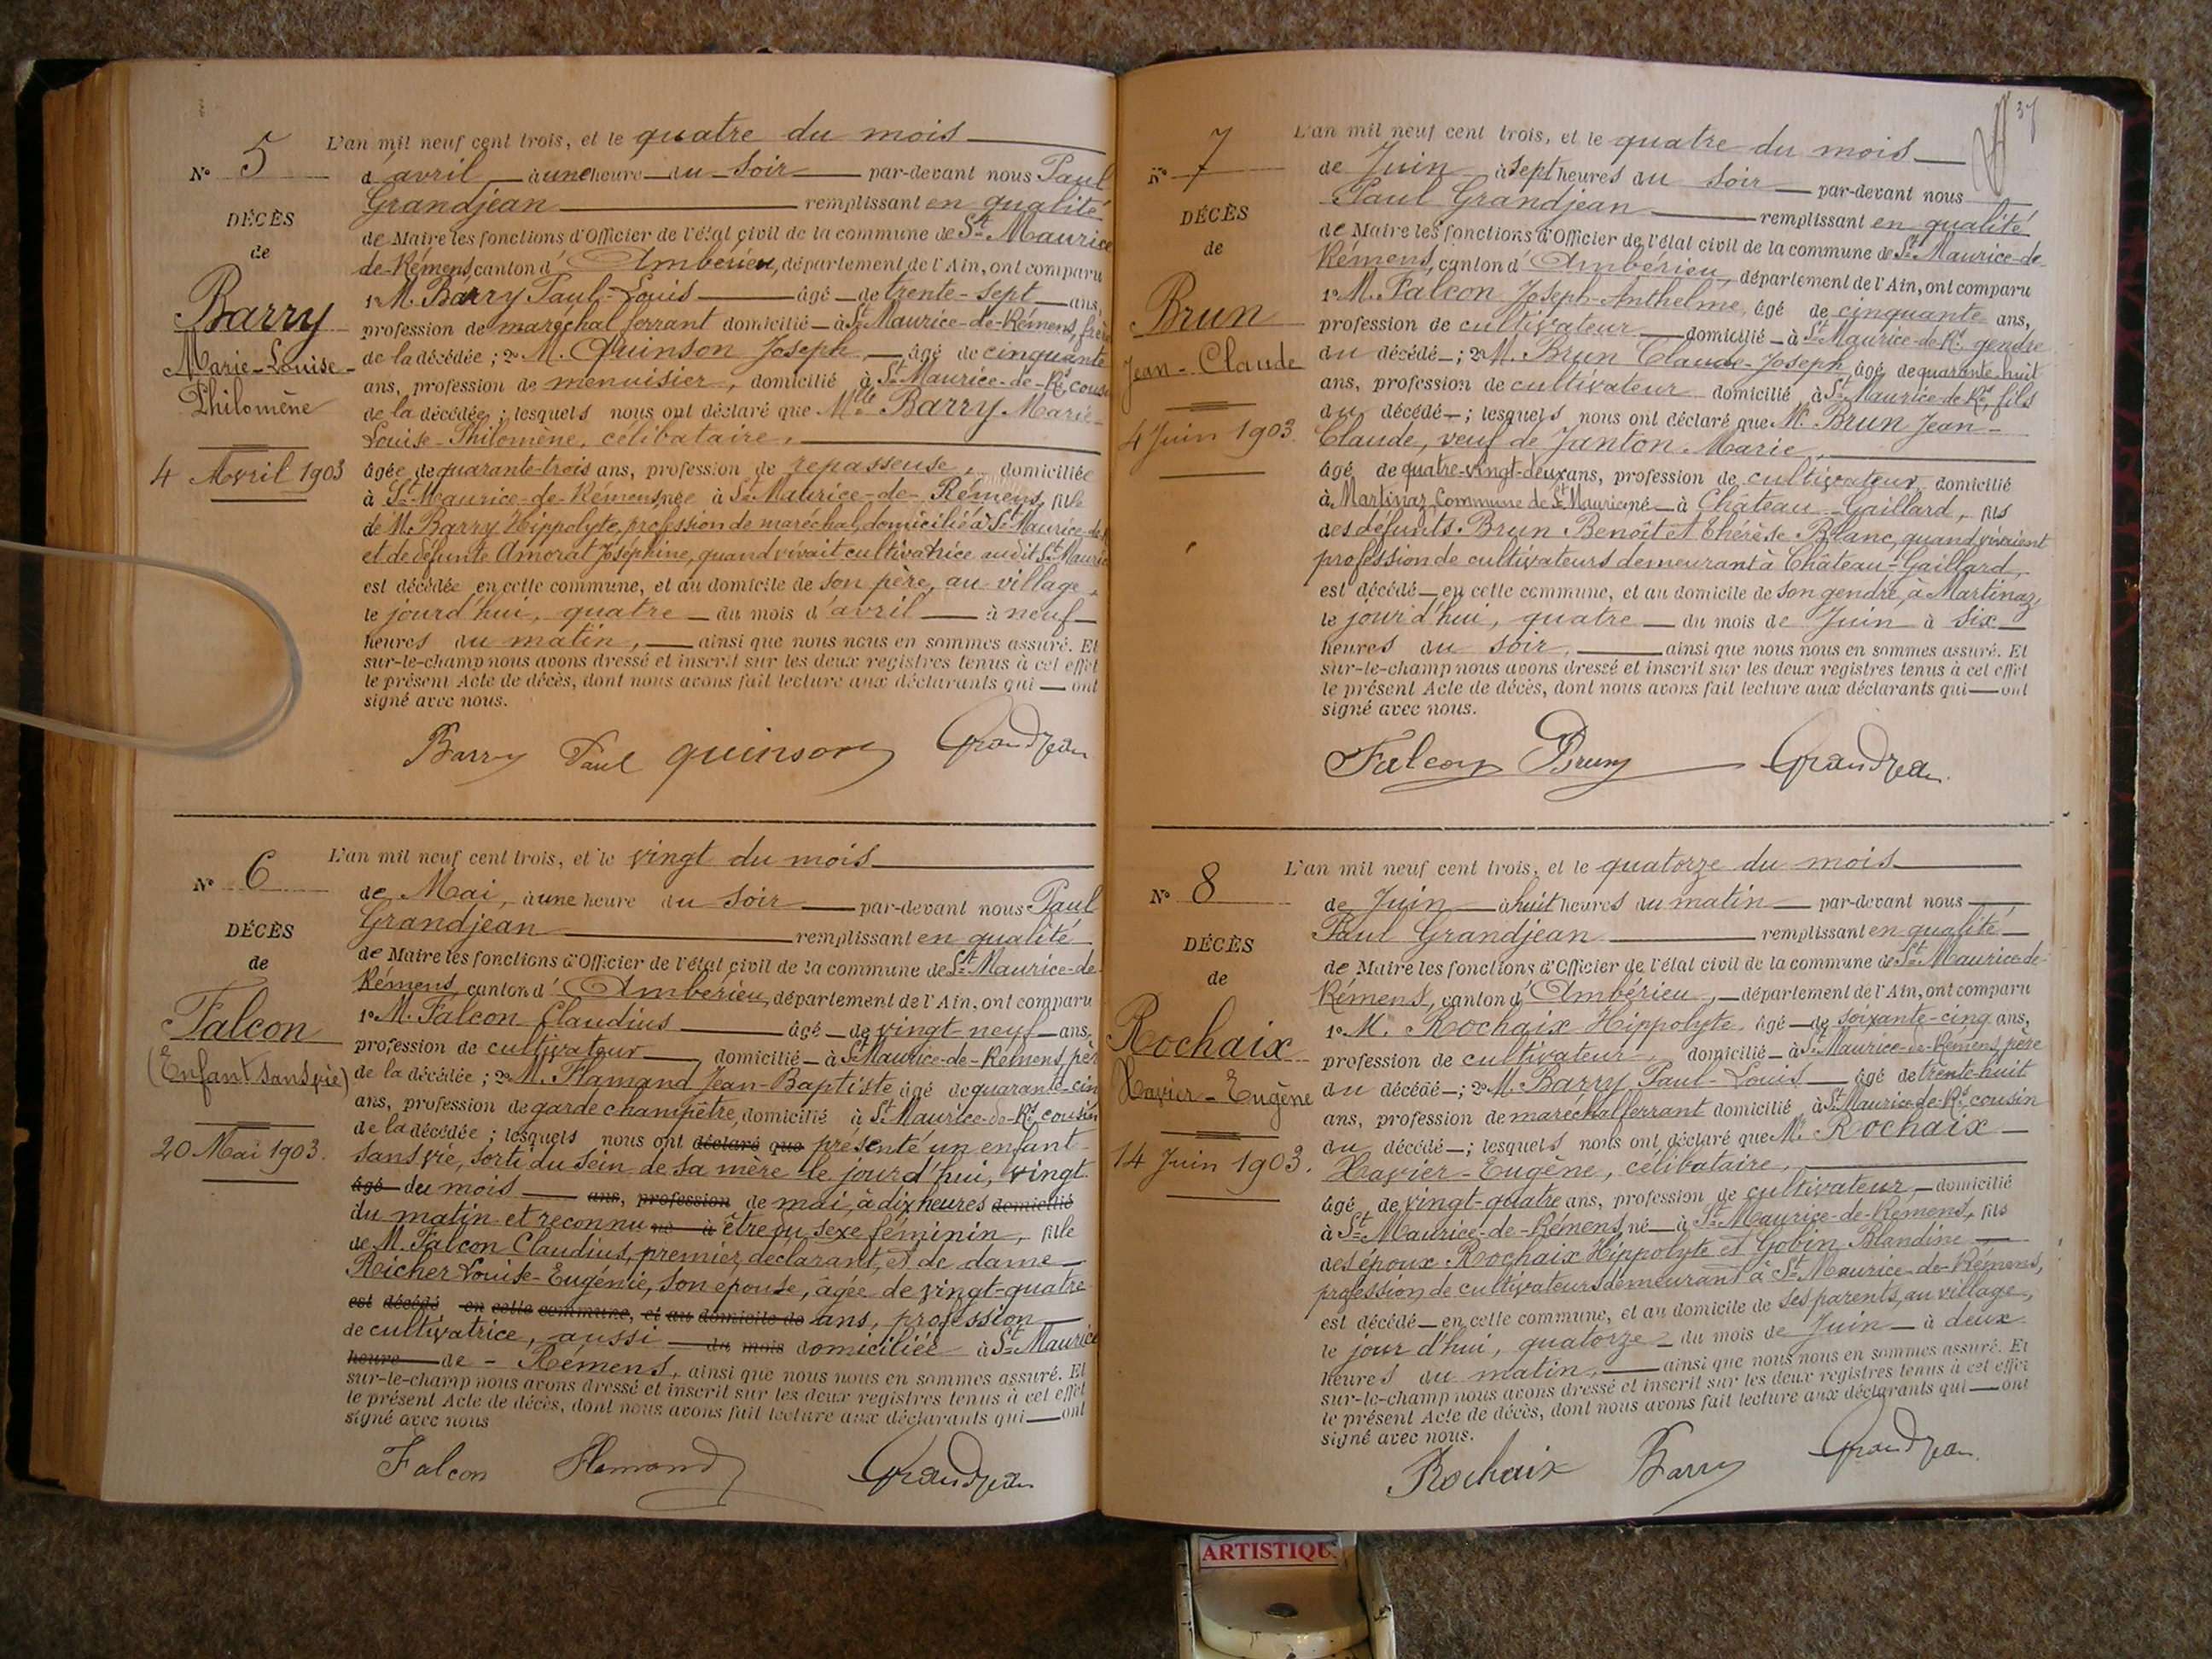 N° 5
DÉCÈS
de
Barry
Marie-Louise-
Philomène
4 Avril 1903
L'an mil neuf cent trois, et le quatre du mois
d'avril à une heure du soir par-devant nous Paul
Grandjean remplissant en qualité
de Maire les fonctions d'Officier de l'état civil de la commune de St Maurice
de-Rémens, canton d'Ambérieu, département de l'Ain, ont comparu
1° M. Barry Paul-Louis âgé de trente-sept ans,
profession de maréchal ferrant domicilié à St Maurice-de-Rémens, frère
de la décédée ; 2° M. Quinson Joseph, âgé de cinquante
ans, profession de menuisier, domicilié à St Maurice-de-Rs cousin
de la décédée ; lesquels nous ont déclaré que Mlle Barry Marie-
Louise-Philomène, célibataire,
âgée de quarante-trois ans, profession de repasseuse, domiciliée
à St Maurice-de-Rémens, née à St Maurice-de-Rémens, fille
de M. Barry Hippolyte, profession de maréchal, domicilié à St Maurice-de-R
et de défunte Amorat Joséphine, quand vivait cultivatrice audit St Maurice
est décédée en cette commune, et au domicile de son père, au village,
le jourd'hui, quatre du mois d'avril à neuf
heures du matin, ainsi que nous nous en sommes assuré. Et
sur-le-champ nous avons dressé et inscrit sur les deux registres tenus à cet effet
le présent Acte de décès, dont nous avons fait lecture aux déclarants qui ont
signé avec nous.
Barry Paul quinson Grandjean
N° 6
DÉCÈS
de
Falcon
(Enfant sans vie)
20 Mai 1903.
L'an mil neuf cent trois, et le vingt du mois
de Mai, à une heure du soir par-devant nous Paul
Grandjean remplissant en qualité
de Maire les fonctions d'Officier de l'état civil de la commune de St Maurice-de-
Rémens, canton d'Ambérieu, département de l'Ain, ont comparu
1° M. Falcon Claudius âgé de vingt-neuf ans,
profession de cultivateur, domicilié à St Maurice-de-Rémens, père
de la décédée ; 2° M. Flamand Jean-Baptiste âgé de quarante-cinq
ans, profession de garde champêtre, domicilié à St Maurice-de-Rs cousin
de la décédée ; lesquels nous ont déclaré que présenté un enfant
sans vie, sorti du sein de sa mère le jourd'hui, vingt
âgé du mois ans, profession de mai, à dix heures domicilié
du matin et reconnu né à être du sexe féminin, fille
de M. Falcon Claudius, premier déclarant, et de dame
Richer Louise-Eugénie, son épouse, âgée de vingt-quatre
est décédé en cette commune, et au domicile de ans, profession
de cultivatrice, aussi du mois domiciliée à St Maurice
heure de-Rémens, ainsi que nous nous en sommes assuré. Et
sur-le-champ nous avons dressé et inscrit sur les deux registres tenus à cet effet
le présent Acte de décès, dont nous avons fait lecture aux déclarants qui ont
signé avec nous
Falcon Flamand Grandjean
37
N° 7
DÉCÈS
de
Brun
Jean-Claude
4 Juin 1903.
L'an mil neuf cent trois, et le quatre du mois
de Juin à sept heures du soir par-devant nous
Paul Grandjean remplissant en qualité
de Maire les fonctions d'Officier de l'état civil de la commune de St Maurice-de-
Rémens, canton d'Ambérieu, département de l'Ain, ont comparu
1° M. Falcon Joseph-Anthelme, âgé de cinquante ans,
profession de cultivateur domicilié à St Maurice-de-Rs gendre
du décédé ; 2° M. Brun Claude-Joseph, âgé de quarante-huit
ans, profession de cultivateur domicilié à St Maurice-de-Rs, fils
du décédé ; lesquels nous ont déclaré que M. Brun Jean-
Claude, veuf de Janton Marie,
âgé de quatre-vingt-deux ans, profession de cultivateur, domicilié
à Martinaz, Commune de St Maurice né à Château-Gaillard, fils
des défunts Brun Benoît et Thérèse Blanc, quand vivaient
profession de cultivateurs demeurant à Château-Gaillard,
est décédé en cette commune, et au domicile de son gendre, à Martinaz,
le jourd'hui, quatre du mois de Juin à six
heures du soir, ainsi que nous nous en sommes assuré. Et
sur-le-champ nous avons dressé et inscrit sur les deux registres tenus à cet effet
le présent Acte de décès, dont nous avons fait lecture aux déclarants qui ont
signé avec nous.
Falcon Brun Grandjean
N° 8
DÉCÈS
de
Rochaix
Xavier-Eugène
14 Juin 1903.
L'an mil neuf cent trois, et le quatorze du mois
de Juin à huit heures du matin par-devant nous
Paul Grandjean remplissant en qualité
de Maire les fonctions d'Officier de l'état civil de la commune de St Maurice-de-
Rémens, canton d'Ambérieu, département de l'Ain, ont comparu
1° M. Rochaix Hippolyte, âgé de soixante-cinq ans,
profession de cultivateur, domicilié à St Maurice-de-Rémens, père
du décédé ; 2° M. Barry Paul-Louis âgé de trente-huit
ans, profession de maréchal ferrant domicilié à St Maurice-de-Rs cousin
du décédé ; lesquels nous ont déclaré que M. Rochaix
Xavier-Eugène, célibataire,
âgé de vingt-quatre ans, profession de cultivateur, domicilié
à St Maurice-de-Rémens, né à St Maurice-de-Rémens, fils
des époux Rochaix Hippolyte et Gobin Blandine
profession de cultivateurs demeurant à St Maurice-de-Rémens,
est décédé en cette commune, et au domicile de ses parents, au village,
le jour d'hui, quatorze du mois de Juin à deux
heures du matin, ainsi que nous nous en sommes assuré. Et
sur-le-champ nous avons dressé et inscrit sur les deux registres tenus à cet effet
le présent Acte de décès, dont nous avons fait lecture aux déclarants qui ont
signé avec nous.
Rochaix Barry Grandjean
ARTISTIQU